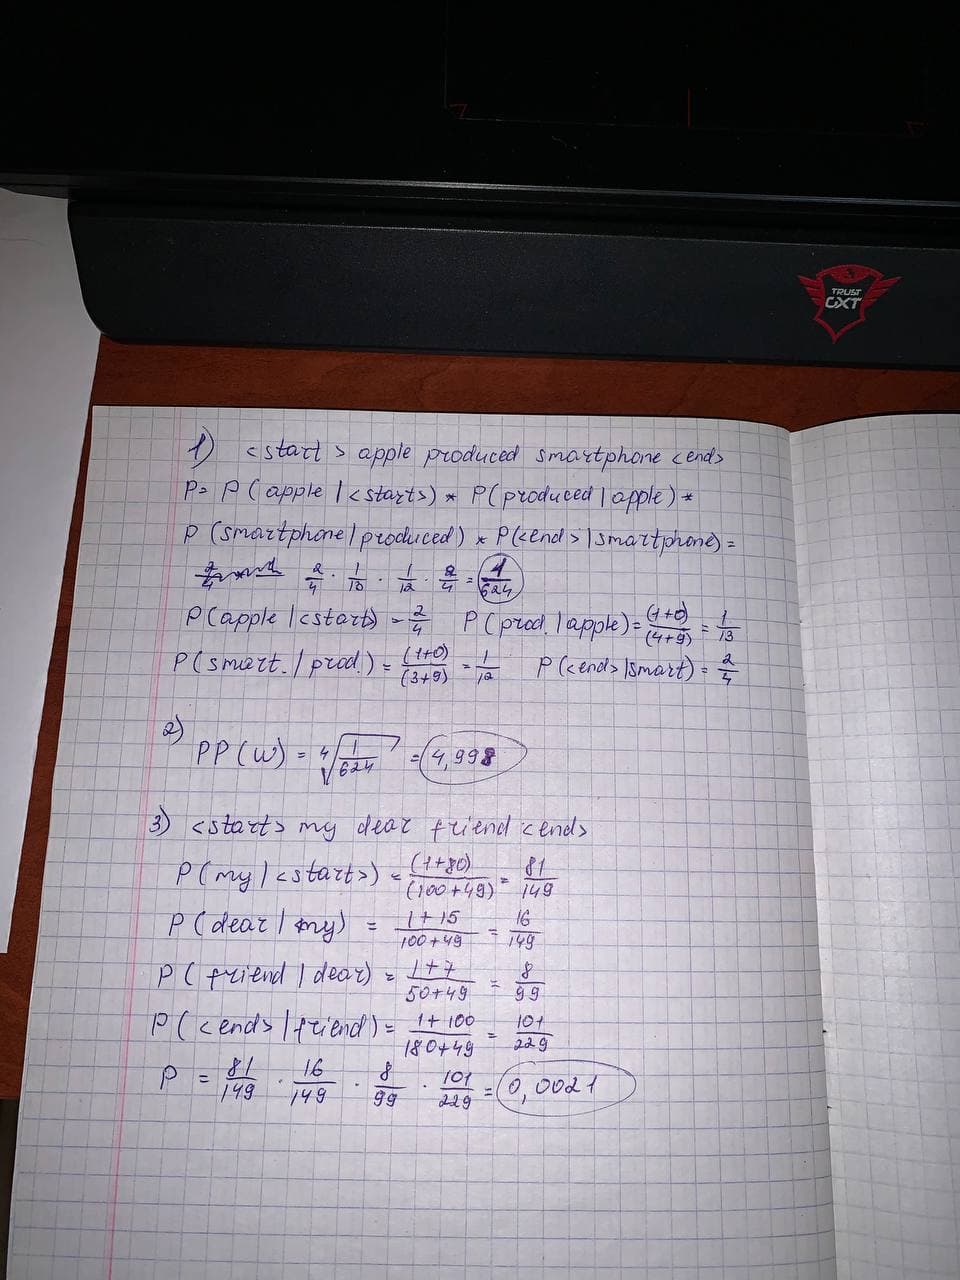 TRUST
GXT
1) <start> apple produced smartphone <end>
P= P(apple | <starts>) * P(produced | apple) *
P(smartphone | produced) * P(<end> | smartphone) =
2/4 · 1/13 · 1/12 · 2/4 = 1/624
P(apple | <start>) = 2/4 P(prod. | apple) = (1+0)/(4+9) = 1/13
P(smart. | prod.) = (1+0)/(3+9) = 1/12 P(<end> | smart) = 2/4
2)
PP(W) = ⁴√(1/624) = 4,998
3) <start> my dear friend <end>
P(my | <start>) = (1+80)/(100+49) = 81/149
P(dear | my) = 1+15/100+49 = 16/149
P(friend | dear) = 1+7/50+49 = 8/99
P(<end> | friend) = 1+100/180+49 = 101/229
P = 81/149 · 16/149 · 8/99 · 101/229 = 0,0021